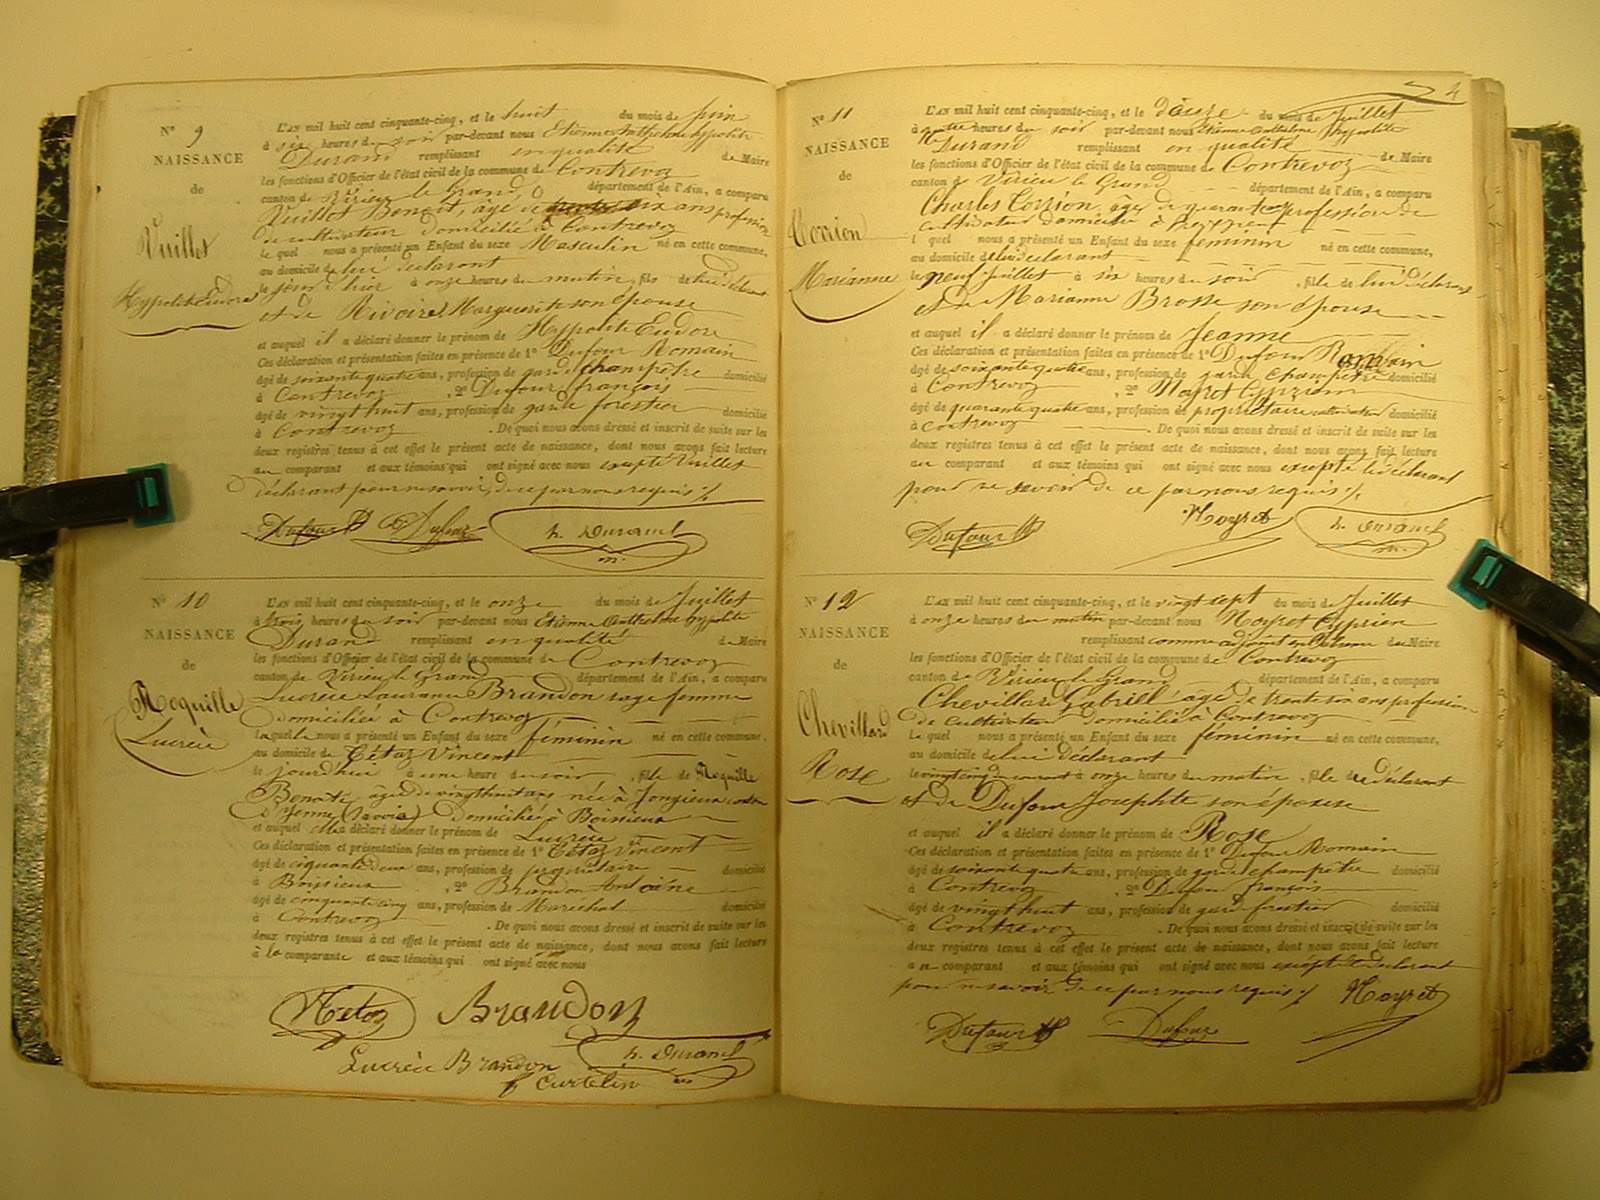 N° 9
NAISSANCE
de
Vuillot
Hypolite Eudore
L'AN mil huit cent cinquante-cinq, et le huit du mois de Juin
à six heures du soir par-devant nous Etienne Anthelme hypolite
Durand remplissant en qualité de Maire
les fonctions d'Officier de l'état civil de la commune de Contrevoz
canton de Virieu le Grand département de l'Ain, a comparu
Vuillot Benoit, âgé de six ans profession
de cultivateur domicilié à Contrevoz
le quel nous a présenté un Enfant du sexe Masculin né en cette commune,
au domicile de lui déclarant
le jour d'hier à onze heures du matin, fils de lui déclarant
et de Rivoire Marguerite son épouse
et auquel il a déclaré donner le prénom de Hyppolite Eudore
Ces déclaration et présentation faites en présence de 1° Dufour Romain
âgé de soixante quatre ans, profession de garde champêtre domicilié
à Contrevoz , 2° Dufour françois
âgé de vingt huit ans, profession de garde forestier domicilié
à Contrevoz . De quoi nous avons dressé et inscrit de suite sur les
deux registres tenus à cet effet le présent acte de naissance, dont nous avons fait lecture
au comparant et aux témoins qui ont signé avec nous excepté Vuillot
déclarant pour ne savoir, de ce par nous requis
Dufour Dufour h. Durand
N° 10
NAISSANCE
de
Roquille
Lucrèce
L'AN mil huit cent cinquante-cinq, et le onze du mois de Juillet
à trois heures du soir par-devant nous Etienne Anthelme hyppolite
Durand remplissant en qualité de Maire
les fonctions d'Officier de l'état civil de la commune de Contrevoz
canton de Virieu le Grand département de l'Ain, a comparu
Lucrèce Brandon sage femme
domiciliée à Contrevoz
laquelle nous a présenté un Enfant du sexe féminin né en cette commune,
au domicile de Cétaz Vincent
de jourd'hui à une heure du soir , fille de Roquille
Benoite âgée de vingt huit ans née à Jongieux canton
d'Yenne (Savoie) domiciliée à Boissieux
et auquel elle a déclaré donner le prénom de Lucrèce
Ces déclaration et présentation faites en présence de 1° Cétaz Vincent
âgé de cinquante deux ans, profession de propriétaire domicilié
à Boissieux , 2° Brandon Antoine
âgé de cinquante cinq ans, profession de Maréchal domicilié
à Contrevoz . De quoi nous avons dressé et inscrit de suite sur les
deux registres tenus à cet effet le présent acte de naissance, dont nous avons fait lecture
à la comparante et aux témoins qui ont signé avec nous
Brandon
Lucrèce Brandon h. Durand
f Curtelin
4
N° 11
NAISSANCE
de
Marianne
L'AN mil huit cent cinquante-cinq, et le douze du mois de Juillet
à quatre heures du soir par-devant nous Etienne Anthelme hyppolite
Durand remplissant en qualité de Maire
les fonctions d'Officier de l'état civil de la commune de Contrevoz
canton de Virieu le Grand département de l'Ain, a comparu
Charles âgé de quarante profession de
cultivateur domicilié à
lequel nous a présenté un Enfant du sexe féminin né en cette commune,
au domicile de lui déclarant
le neuf Juillet à six heures du soir , fille de lui déclarant
et de Marianne Brosse son épouse
et auquel il a déclaré donner le prénom de Jeanne
Ces déclaration et présentation faites en présence de 1° Dufour Romain
âgé de soixante quatre ans, profession de garde champêtre domicilié
à Contrevoz , 2° Noyret Cyprien
âgé de quarante quatre ans, profession de propriétaire cultivateur domicilié
à Contrevoz . De quoi nous avons dressé et inscrit de suite sur les
deux registres tenus à cet effet le présent acte de naissance, dont nous avons fait lecture
au comparant et aux témoins qui ont signé avec nous excepté le déclarant
pour ne savoir de ce par nous requis
Dufour Noyret h. Durand
N° 12
NAISSANCE
de
Chevillard
Rose
L'AN mil huit cent cinquante-cinq, et le vingt sept du mois de Juillet
à onze heures du matin par-devant nous Noyret Cyprien
remplissant comme adjoint en l'absence du Maire
les fonctions d'Officier de l'état civil de la commune de Contrevoz
canton de Virieu le grand département de l'Ain, a comparu
Chevillard Gabriell âgé de trente six ans profession
de cultivateur domicilié à Contrevoz
le quel nous a présenté un Enfant du sexe féminin né en cette commune,
au domicile de lui déclarant
le vingt cinq du courant à onze heures du matin , fille de déclarant
et de Dufour Josephte son épouse
et auquel il a déclaré donner le prénom de Rose
Ces déclaration et présentation faites en présence de 1° Dufour Romain
âgé de soixante quatre ans, profession de garde champêtre domicilié
à Contrevoz , 2° Dufour françois
âgé de vingt huit ans, profession de garde forestier domicilié
à Contrevoz . De quoi nous avons dressé et inscrit de suite sur les
deux registres tenus à cet effet le présent acte de naissance, dont nous avons fait lecture
au comparant et aux témoins qui ont signé avec nous excépté le déclarant
pour ne savoir de ce par nous requis Noyret
Dufour Dufour